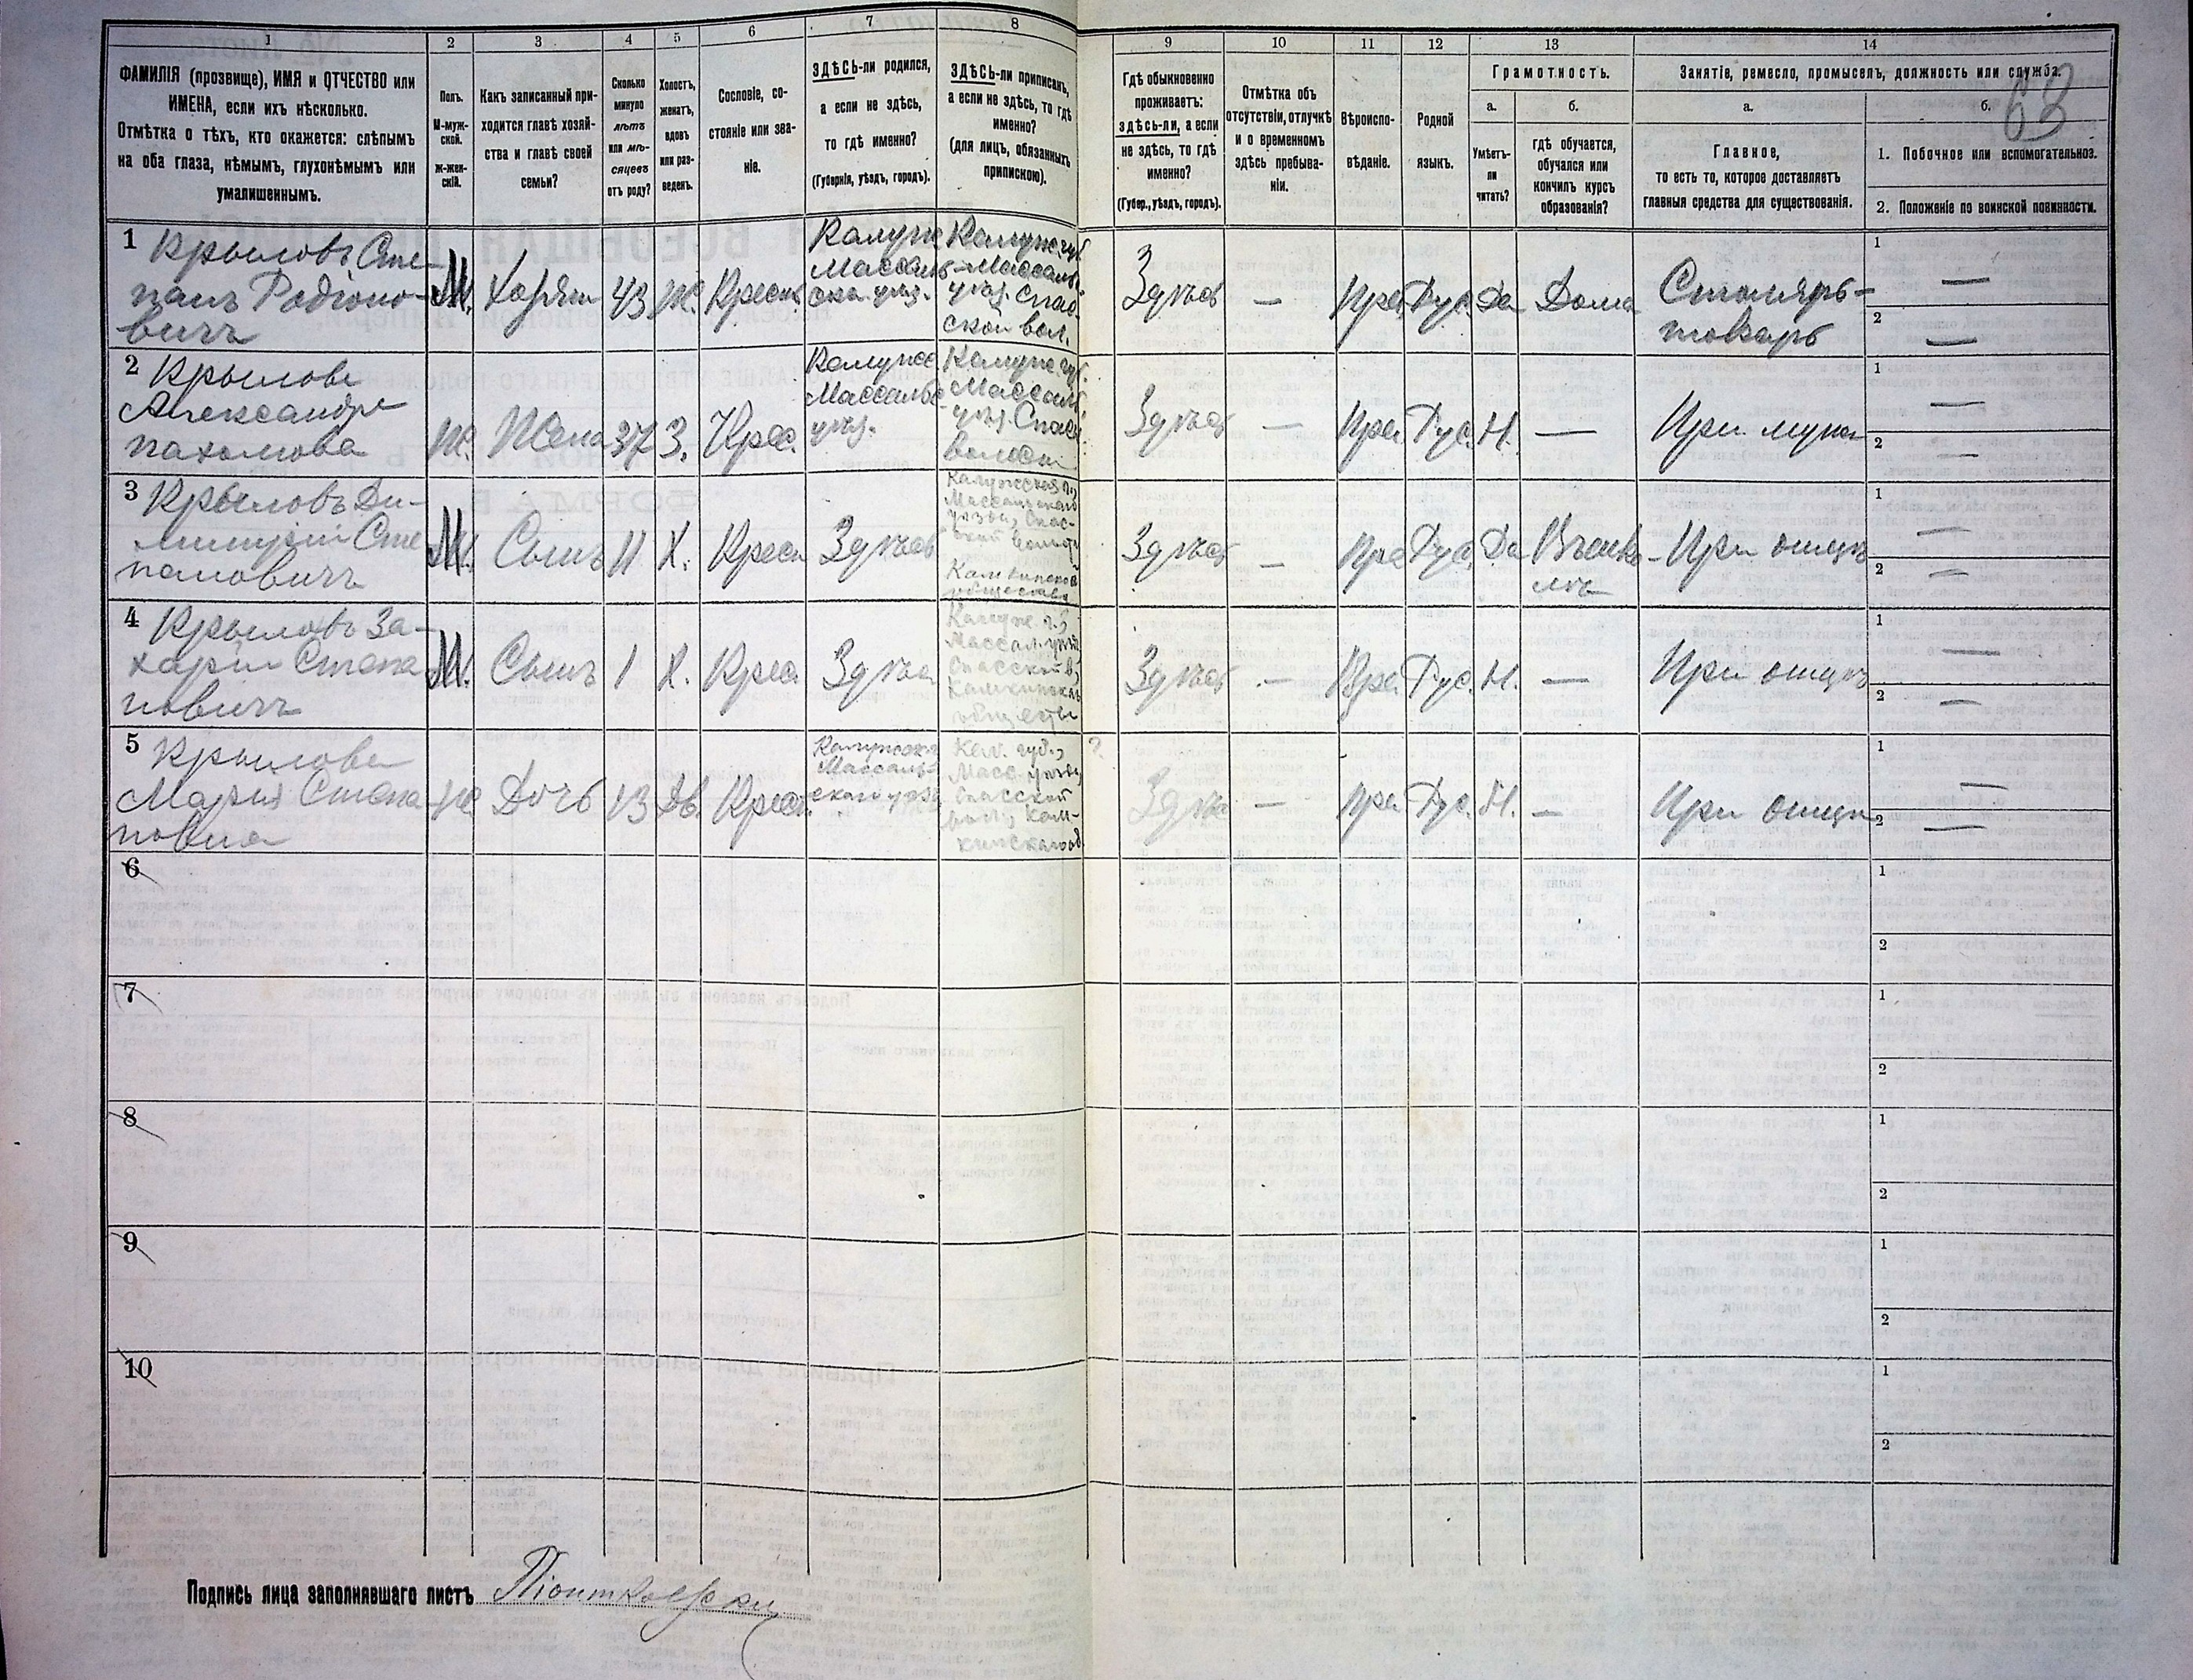 1
2
3
4
5
6
7
8
9
10
11
12
13
14
63
ФАМИЛІЯ (прозвище), ИМЯ и ОТЧЕСТВО или
ИМЕНА, если ихъ нѣсколько.
Отмѣтка о тѣхъ, кто окажется: слѣпымъ
на оба глаза, нѣмымъ, глухонѣмымъ или
умалишеннымъ.
Полъ.
М-муж-
ской.
ж-жен-
скій.
Какъ записанный при-
ходится главѣ хозяй-
ства и главѣ своей
семьи?
Сколько
минуло
лѣтъ
или мѣ-
сяцевъ
отъ роду?
Холостъ,
женатъ,
вдовъ
или раз-
веденъ.
Сословіе, со-
стояніе или зва-
ніе.
ЗДѢСЬ-ли родился,
а если не здѣсь,
то гдѣ именно?
(Губернія, уѣздъ, городъ).
ЗДѢСЬ-ли приписанъ,
а если не здѣсь, то гдѣ
именно?
(для лицъ, обязанныхъ
припискою).
Гдѣ обыкновенно
проживаетъ:
здѣсь-ли, а если
не здѣсь, то гдѣ
именно?
(Губер., уѣздъ, городъ).
Отмѣтка объ
отсутствіи, отлучкѣ
и о временномъ
здѣсь пребыва-
ніи.
Вѣроиспо-
вѣданіе.
Родной
языкъ.
Грамотность.
а.
Умѣетъ-
ли
читать?
б.
гдѣ обучается,
обучался или
кончилъ курсъ
образованія?
Занятіе, ремесло, промыселъ, должность или служба.
а.
Главное,
то есть то, которое доставляетъ
главныя средства для существованія.
б.
1. Побочное или вспомогательное.
2. Положеніе по воинской повинности.
1
Крыловъ Сте-
панъ Родіоно-
вичъ
М.
Хозяин
43
Ж.
Крест
Калуж
Массаль
ска. уѣз.
Калуж. губ.
Массаль.
уѣз. Спас-
ской вол.
Здѣсь
—
Пра
Рус.
Да
Дома
Столяръ-
токарь
1 —
2 —
2
Крылова
Александра
Пахомова
Ж.
Жена
37
З.
Крес.
Калужс
Массальс
уѣз.
Калуж губ.
Массаль.
уѣз. Спасс
волости
Здѣсь
—
Пра
Рус.
Н.
—
При мужѣ
1 —
2 —
3
Крыловъ Ди-
митрій Сте
пановичъ
М.
Сынъ
11
Х.
Крест
Здѣсь
Калужская г.,
Массальскаго
уѣзда, Спас-
ской волости
общества
Здѣсь
—
Пра
Рус.
Да
Въ шко-
лѣ
При отцѣ
1 —
2 —
4
Крыловъ За-
харій Степа
новичъ
М.
Сынъ
1
Х.
Крес.
Здѣсь
Калуж. г.,
Массал. уѣзд
Спасской в.,
обществ
Здѣсь
—
Пра
Рус.
Н.
—
При отцѣ
1 —
2 —
5
Крылова
Марія Степа
новна
Ж
Дочь
13
Дѣ.
Крест
Калужска
Массаль-
скаго уѣзд
Кал. губ.,
Масс. уѣзда,
Спасской
вол.,
?
Здѣс
—
Пра
Рус.
Н.
—
При отцѣ
1 —
2 —
6
1
2
7
1
2
8
1
2
9
1
2
10
1
2
Подпись лица заполнявшаго листъ Піотковски